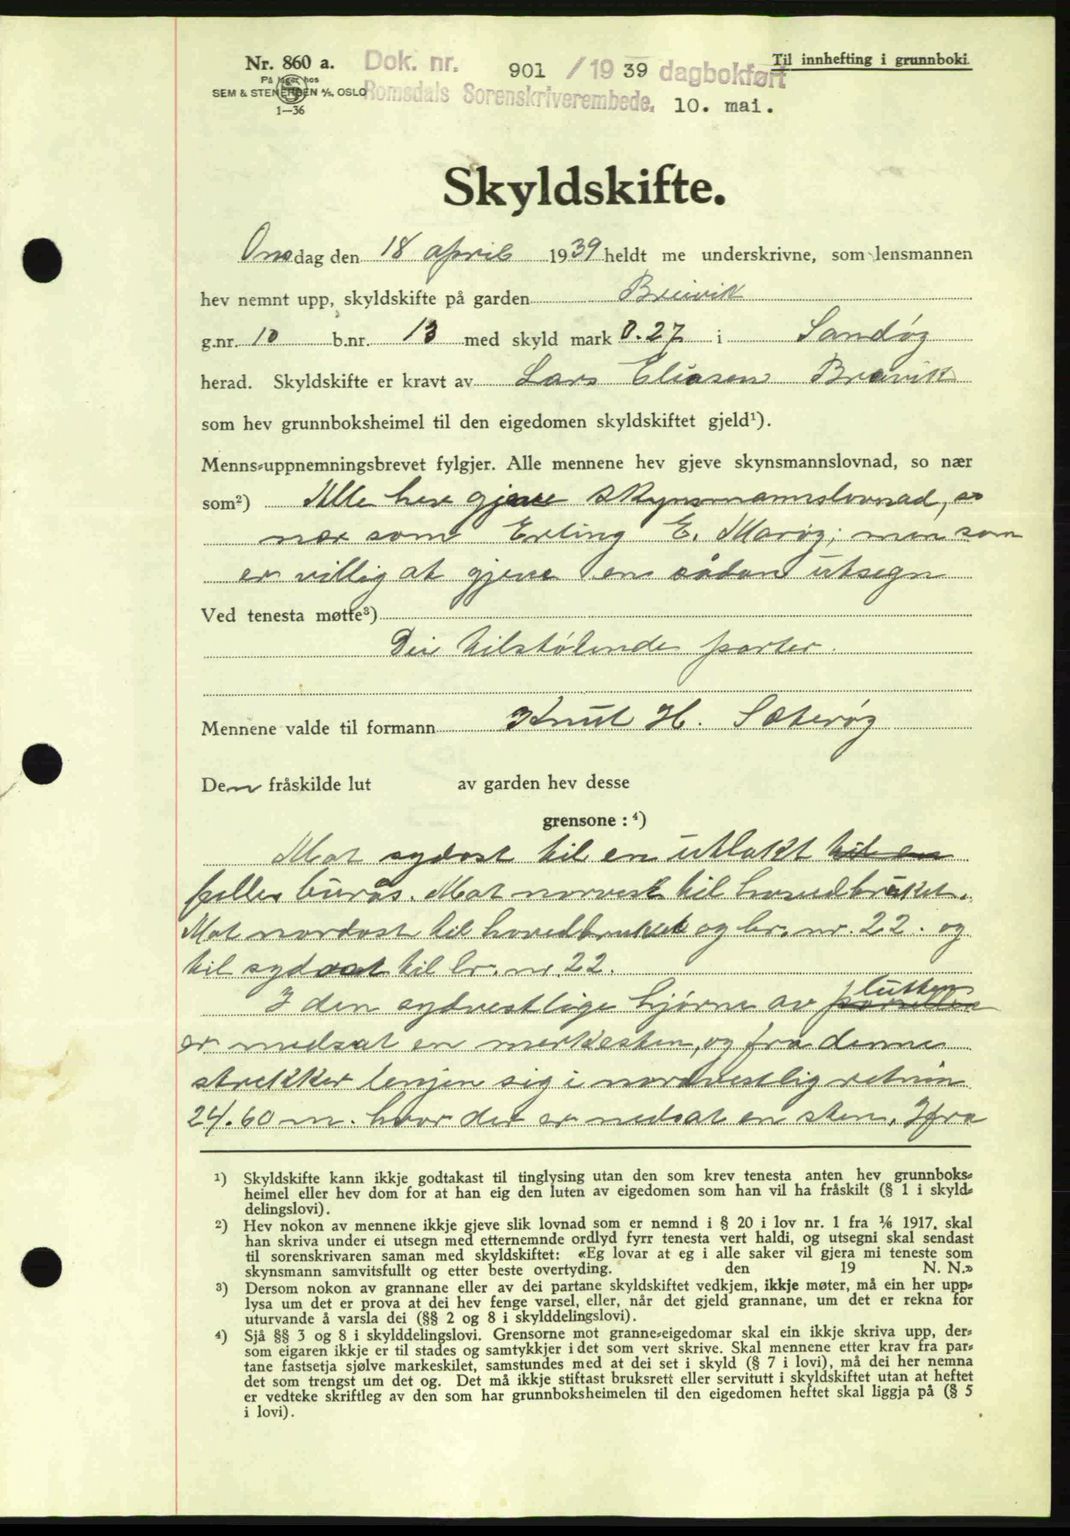 Nr. 860 a.
På lager hos
SEM & STENERSEN A/S, OSLO
1—36
Dok. nr. 901 / 19 39 dagbokført
Romsdals Sorenskriverembede, 10. mai.
Til innhefting i grunnboki.
Skyldskifte.
Onsdag den 18 april 1939 heldt me underskrivne, som lensmannen
hev nemnt upp, skyldskifte på garden Breivik
g.nr. 10 b.nr. 13 med skyld mark 0.27 i Sandøy
herad. Skyldskifte er kravt av Lars Eliasen Breivik
som hev grunnboksheimel til den eigedomen skyldskiftet gjeld¹).
Menns-uppnemningsbrevet fylgjer. Alle mennene hev gjeve skynsmannslovnad, so nær
som²) Alle hev gjeve skynsmannslovnad, so
nær som Erling E. Marøy, men som
er villig at gjeve en sådan utsegn
Ved tenesta møtte³)
Dei tilstøtende parter.
Mennene valde til formann Knut H. Sæterøy
Den fråskilde lut av garden hev desse
grensone: ⁴)
Mot sydost til en utlakt til en
felles burås. Mot norvest til hovedbruket.
Mot nordost til hovedbruket og br. nr. 22. og
til sydost til br. nr. 22.
I den sydvestlige hjørne av parsellen lutten
er nedsat en merkesten, og fra denne
strekker lenjen sig i nordvestlig retnin
24.60 m. hvor der er nedsat en sten. Ifra
¹) Skyldskifte kann ikkje godtakast til tinglysing utan den som krev tenesta anten hev grunnboks-
heimel eller hev dom for at han eig den luten av eigedomen som han vil ha fråskilt (§ 1 i skyld-
delingslovi).
²) Hev nokon av mennene ikkje gjeve slik lovnad som er nemnd i § 20 i lov nr. 1 fra 1/6 1917, skal
han skriva under ei utsegn med etternemnde ordlyd fyrr tenesta vert haldi, og utsegni skal sendast
til sorenskrivaren saman med skyldskiftet: «Eg lovar at eg i alle saker vil gjera mi teneste som
skynsmann samvitsfullt og etter beste overtyding. den 19 N. N.»
³) Dersom nokon av grannane eller av dei partane skyldskiftet vedkjem, ikkje møter, må ein her upp-
lysa um det er prova at dei hev fenge varsel, eller, når det gjeld grannane, um det er rekna for
uturvande å varsla dei (§§ 2 og 8 i skylddelingslovi).
⁴) Sjå §§ 3 og 8 i skylddelingslovi. Grensorne mot granne-eigedomar skal ein ikkje skriva upp, der-
som eigaren ikkje er til stades og samtykkjer i det som vert skrive. Skal mennene etter krav fra par-
tane fastsetja sjølve markeskilet, samstundes med at dei set i skyld (§ 7 i lovi), må dei her nemna
det som trengst um det og. Det må ikkje stiftast bruksrett eller servitutt i skyldskiftet utan at heftet
er vedteke skriftleg av den som har grunnboksheimelen til den eigedomen heftet skal liggja på (§ 5
i lovi).